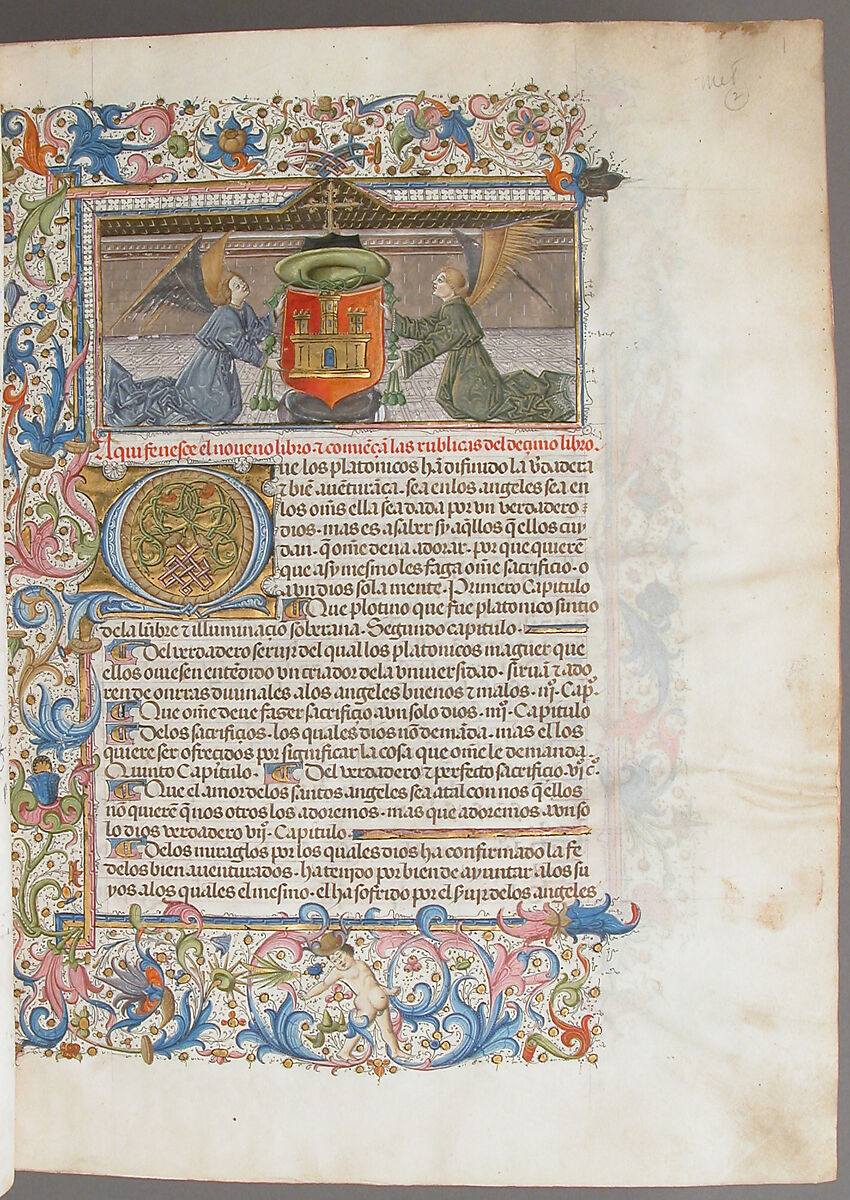 met
2
1
Aqui fenesçe el noueno libro ⁊ comiẽçã las rublicas del deçimo libro.
Que los platonicos hã difinido la v̉dadera
⁊ biẽ auẽturãça. sea en los angeles sea en
los om̃s ella sea dada por vn verdadero
dios. mas es a saber sy aq̃llos q̃ ellos cuy
dan. q̃ om̃e deua adorar. por que quierẽ
que asy mesmo les faga om̃e sacrificio. o
a vn dios sola mente. Primero Capitulo
Que plotino que fue platonico sintio
dela lũbre ⁊ illuminaçiõ soberana. Segundo capitulo.
Del verdadero seruir del qual los platonicos maguer que
ellos ouiesen entẽdido vn criador dela vniuersidad. siruiã ⁊ ado
ren de onrras diuinales alos angeles buenos ⁊ malos. iijº. Capº.
Que om̃e deue fazer sacrifiçio. a vn solo dios. iiijº. Capitulo
Delos sacrifiçios. los quales dios nõ demãda. mas ellos
quiere ser ofreçidos por significar la cosa que om̃e le demanda.
Quinto Capitulo. Del verdadero ⁊ perfecto sacrifiçio. vjº cº.
Que el amor delos santos angeles sea atal con nos q̃ ellos
nõ quierẽ q̃ nos otros los adoremos. mas que adoremos. a vn so
lo dios verdadero vijº. Capitulo.
Delos miraglos por los quales dios ha confirmado la fe
delos bien auenturados. ha tenido por bien de ayuntar. alos su
yos alos quales el mesmo. el ha sofrido por el s̃uir delos angeles